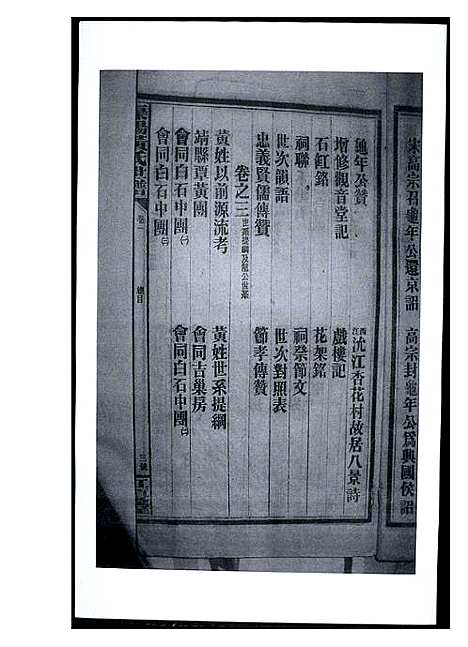 宋高宗召龜年公還京詔　高宗封龜年公爲興國侯詔
龜年公贊　江西沈江杏花村故居八景詩
增修觀音堂記　戲樓記
石虹銘　花架銘
祠聯　祠祭節文
世次韻語　世次對照表
忠義賢儒傳贊　節孝傳贊
卷之三
黃姓以前源流考　黃姓世系提綱
靖縣覃黃團　會同吉巢房
會同白石中團㈠　會同白石中團㈡
會同白石中團㈢
卷
總目